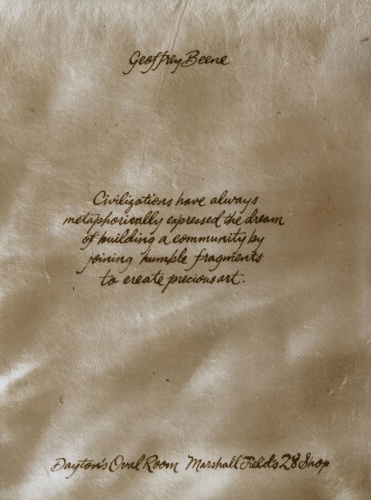 Geoffrey Beene
Civilizations have always
metaphorically expressed the dream
of building a community by
joining humble fragments
to create precious art.
Dayton's Oval Room Marshall Field's 28 Shop